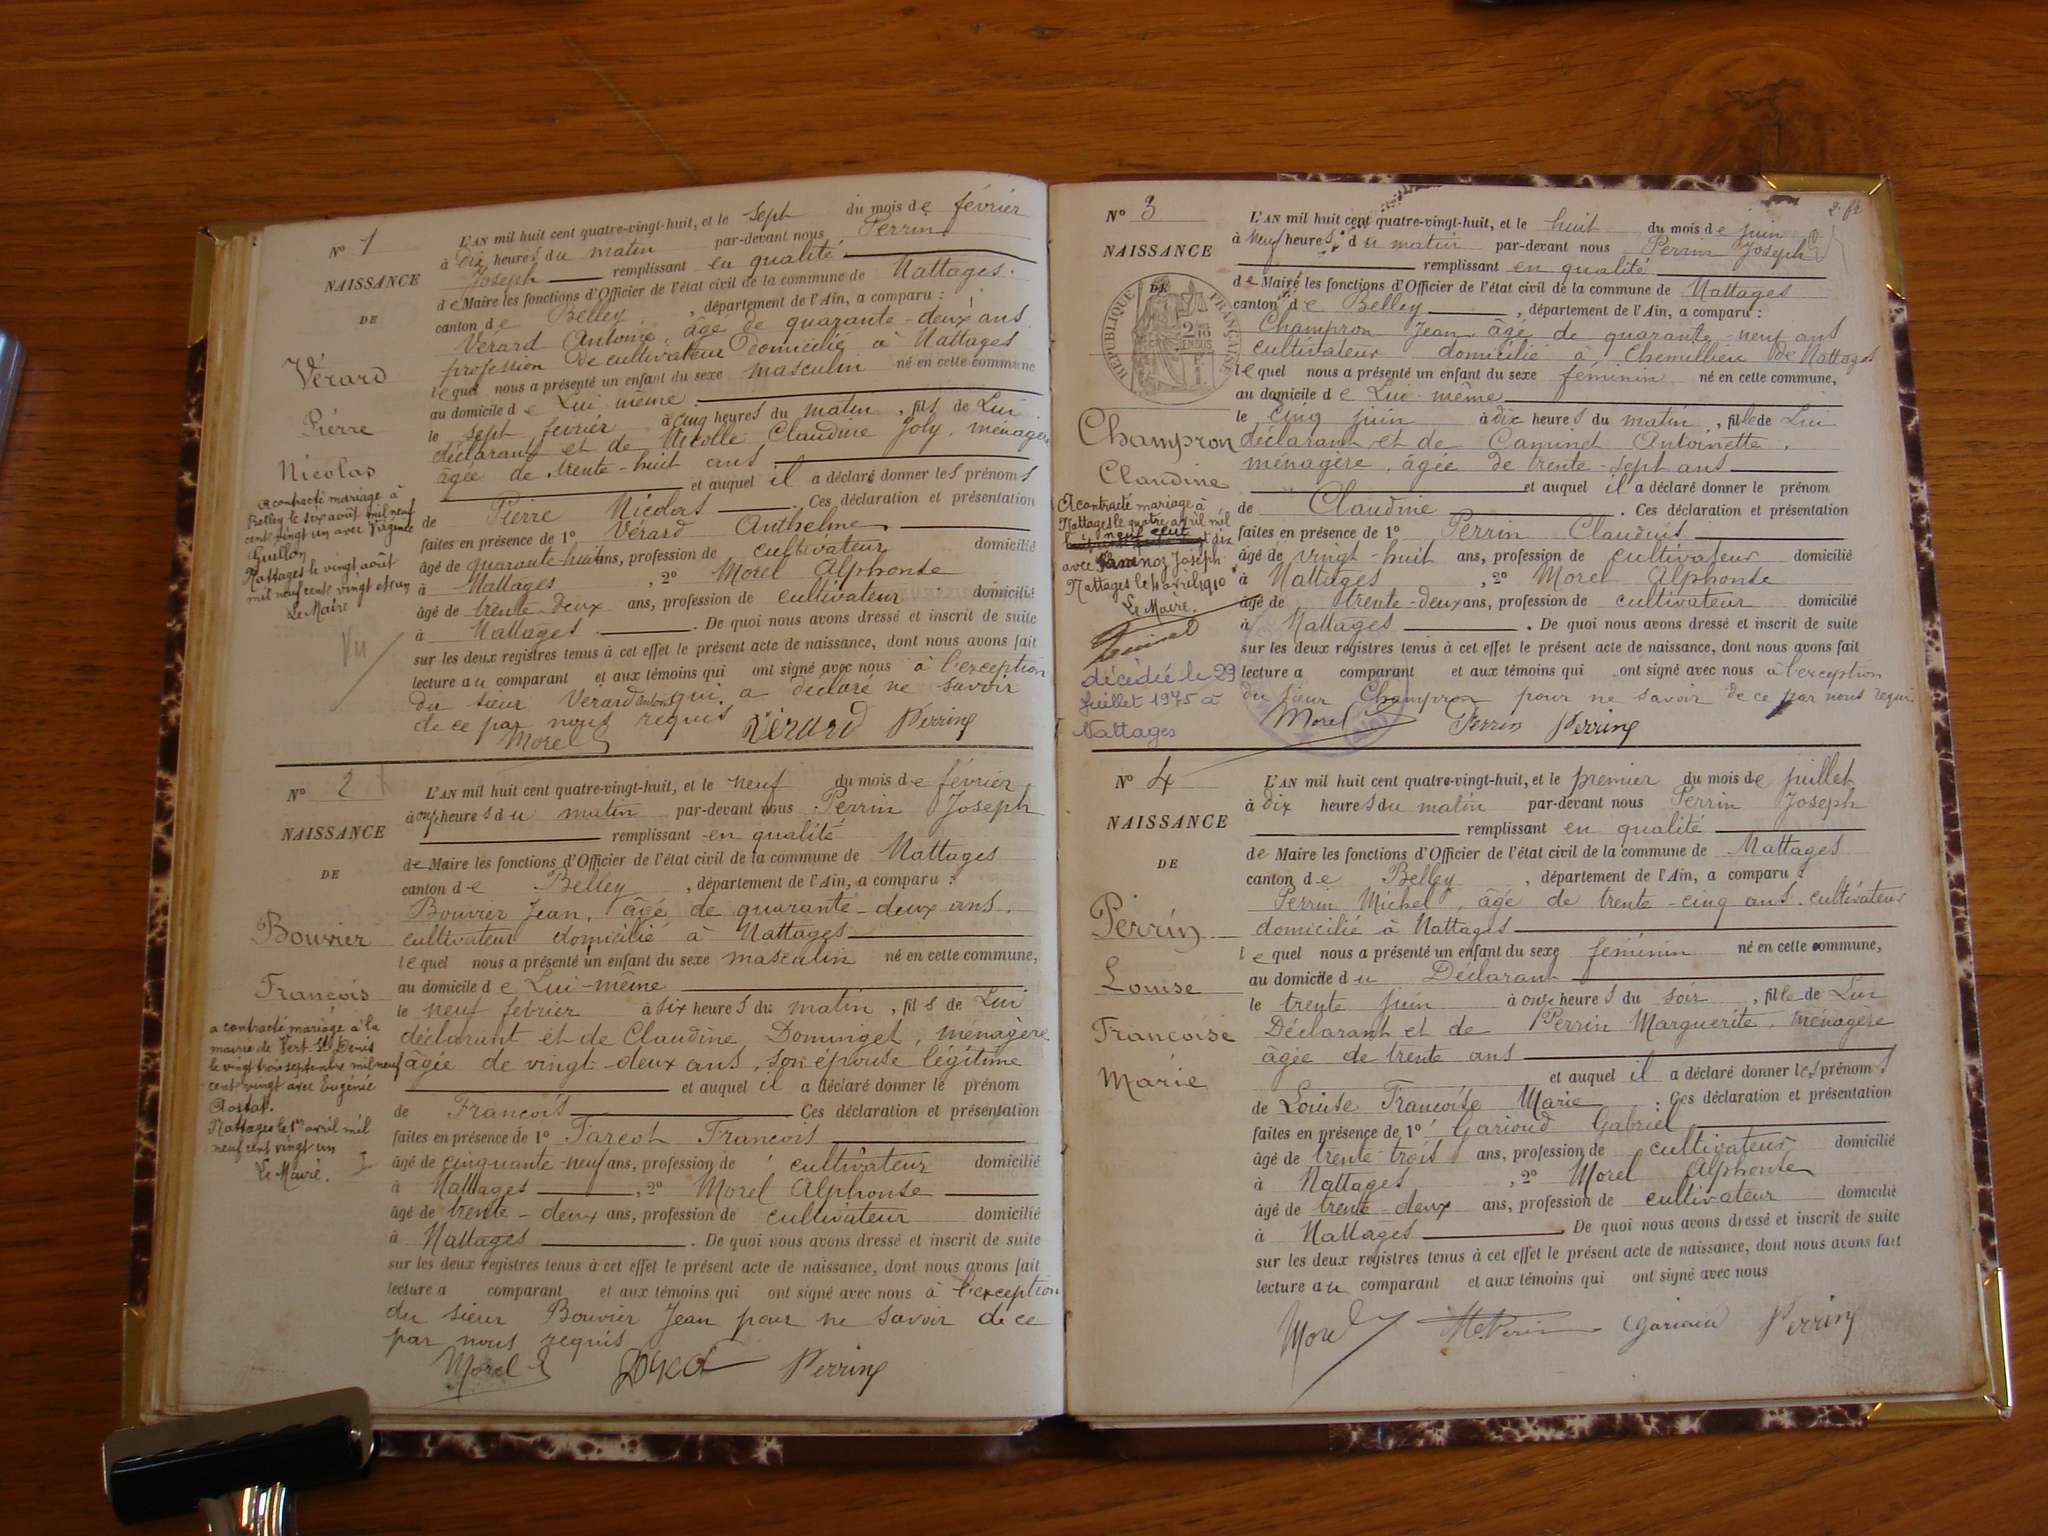 N° 1
NAISSANCE
DE
Vérard
Pierre
Nicolas
a contracté mariage à
Belley le six août mil neuf
cent vingt un avec Virginie
Guillon
Nattages le vingt août
mil neuf cent vingt et un
Le Maire
Vu
L'AN mil huit cent quatre-vingt-huit, et le sept du mois de février
à dix heures du matin par-devant nous Perrin
Joseph remplissant en qualité
de Maire les fonctions d'Officier de l'état civil de la commune de Nattages.
canton de Belley, département de l'Ain, a comparu :
Vérard Antoine, âgé de quarante-deux ans
profession de cultivateur domicilié à Nattages
lequel nous a présenté un enfant du sexe masculin né en cette commune
au domicile de Lui même
le sept fevrier à cinq heures du matin, fils de Lui
déclarant et de Nicolle Claudine Joly, ménagère
âgée de trente-huit ans
et auquel il a déclaré donner les prénoms
de Pierre Nicolas. Ces déclaration et présentation
faites en présence de 1° Vérard Anthelme
âgé de quarante huit ans, profession de cultivateur domicilié
à Nattages, 2° Morel Alphonse
âgé de trente-deux ans, profession de cultivateur domicilié
à Nattages. De quoi nous avons dressé et inscrit de suite
sur les deux registres tenus à cet effet le présent acte de naissance, dont nous avons fait
lecture au comparant et aux témoins qui ont signé avec nous à l'exception
du sieur Verard Antoine qui a déclaré ne savoir
de ce par nous requis
Morel Vérard Perrin
N° 2
NAISSANCE
DE
Bouvier
François
a contracté mariage à la
mairie de Vert-St Denis
le vingt trois septembre mil neuf
cent vingt avec Eugénie
Nattages le 1er avril mil
neuf cent vingt un
Le Maire.
L'AN mil huit cent quatre-vingt-huit, et le neuf du mois de février
à onze heures du matin par-devant nous Perrin Joseph
remplissant en qualité
de Maire les fonctions d'Officier de l'état civil de la commune de Nattages
canton de Belley, département de l'Ain, a comparu :
Bouvier Jean, âgé de quarante-deux ans.
cultivateur domicilié à Nattages
lequel nous a présenté un enfant du sexe masculin né en cette commune,
au domicile de Lui-même
le neuf fevrier à six heures du matin, fils de Lui
déclarant et de Claudine Dominget, ménagère
âgée de vingt-deux ans, son épouse légitime
et auquel il a déclaré donner le prénom
de François Ces déclaration et présentation
faites en présence de 1° François
âgé de cinquante-neuf ans, profession de cultivateur domicilié
à Nattages, 2° Morel Alphonse
âgé de trente-deux ans, profession de cultivateur domicilié
à Nattages. De quoi nous avons dressé et inscrit de suite
sur les deux registres tenus à cet effet le présent acte de naissance, dont nous avons fait
lecture a comparant et aux témoins qui ont signé avec nous à l'exception
du sieur Bouvier Jean pour ne savoir de ce
par nous requis
Morel Perrin
2. ft
N° 3
NAISSANCE
DE
RÉPUBLIQUE FRANÇAISE
Champron
Claudine
A contracté mariage à
Nattages le quatre avril mil
neuf cent
dix
avec Joseph
Nattages le 4 avril 1910
Le Maire.
décédée le 29
Juillet 1975 à
Nattages
L'AN mil huit cent quatre-vingt-huit, et le huit du mois de juin
à neuf heures du matin par-devant nous Perrin Joseph
remplissant en qualité
de Maire les fonctions d'Officier de l'état civil de la commune de Nattages
canton de Belley, département de l'Ain, a comparu :
Champron Jean âgé de quarante-neuf ans
cultivateur domicilié à Chemillieu de Nattages
lequel nous a présenté un enfant du sexe féminin né en cette commune,
au domicile de Lui-même
le cinq juin à dix heures du matin, fille de Lui
déclarant et de Caminet Antoinette,
ménagère, âgée de trente-sept ans
et auquel il a déclaré donner le prénom
de Claudine. Ces déclaration et présentation
faites en présence de 1° Perrin Claudius
âgé de vingt-huit ans, profession de cultivateur domicilié
à Nattages, 2° Morel Alphonse
âgé de trente-deux ans, profession de cultivateur domicilié
à Nattages. De quoi nous avons dressé et inscrit de suite
sur les deux registres tenus à cet effet le présent acte de naissance, dont nous avons fait
lecture a comparant et aux témoins qui ont signé avec nous à l'exception
du sieur Champron pour ne savoir de ce par nous requis
Morel Perrin Perrin
N° 4
NAISSANCE
DE
Perrin
Louise
Francoise
Marie
L'AN mil huit cent quatre-vingt-huit, et le premier du mois de juillet
à dix heures du matin par-devant nous Perrin Joseph
remplissant en qualité
de Maire les fonctions d'Officier de l'état civil de la commune de Nattages
canton de Belley, département de l'Ain, a comparu :
Perrin Michel, âgé de trente-cinq ans. cultivateur
domicilié à Nattages
lequel nous a présenté un enfant du sexe féminin né en cette commune,
au domicile du Déclarant
le trente juin à onze heures du soir, fille de Lui
Déclarant et de Perrin Marguerite, ménagère
âgée de trente ans
et auquel il a déclaré donner les prénoms
de Louise Françoise Marie. Ces déclaration et présentation
faites en présence de 1° Garioud Gabriel
âgé de trente-trois ans, profession de cultivateur domicilié
à Nattages, 2° Morel Alphonse
âgé de trente-deux ans, profession de cultivateur domicilié
à Nattages. De quoi nous avons dressé et inscrit de suite
sur les deux registres tenus à cet effet le présent acte de naissance, dont nous avons fait
lecture au comparant et aux témoins qui ont signé avec nous
Morel Garioud Perrin